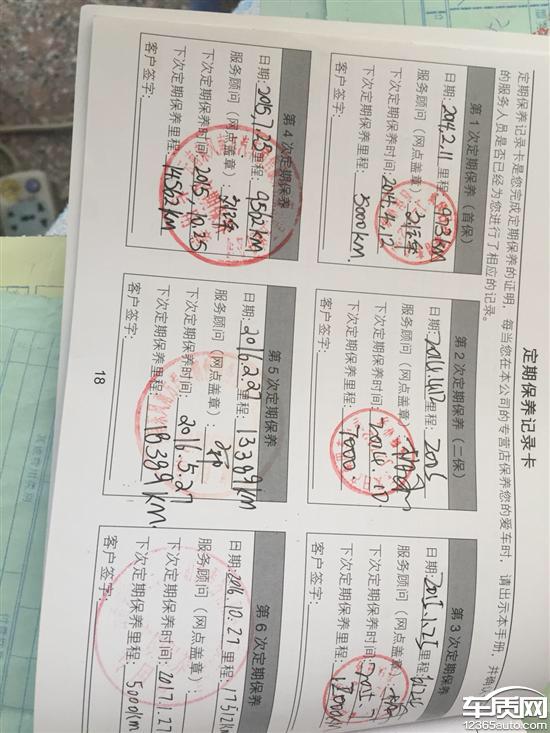 定期保养记录卡
定期保养记录卡是您完成定期保养的证明，每当您在本公司的专营店保养您的爱车时，请出示本手册，并确认
的服务人员是否已经为您进行了相应的记录。
第1次定期保养（首保）
日期：2014.2.11 里程：903km
服务顾问（网点盖章）：
下次定期保养时间：2014.4.12
下次定期保养里程：3000km.
客户签字：
第2次定期保养（二保）
日期： 里程：2005
服务顾问（网点盖章）：
下次定期保养时间：
下次定期保养里程：7000
客户签字：
第3次定期保养
日期：2015.1.25 里程：
服务顾问（网点盖章）：
下次定期保养时间：
下次定期保养里程：
客户签字：
第4次定期保养
日期：2015.7.25 里程：9562km
服务顾问（网点盖章）：
下次定期保养时间：2015.10.25
下次定期保养里程：14562km
客户签字：
第5次定期保养
日期：2016.2.27 里程：13389km
服务顾问（网点盖章）：
下次定期保养时间：2016.5.27
下次定期保养里程：18389km
客户签字：
第6次定期保养
日期：2016.10.27 里程：17512km
服务顾问（网点盖章）：
下次定期保养时间：2017.1.27
下次定期保养里程：5000km
客户签字：
18
车质网
12365auto.com